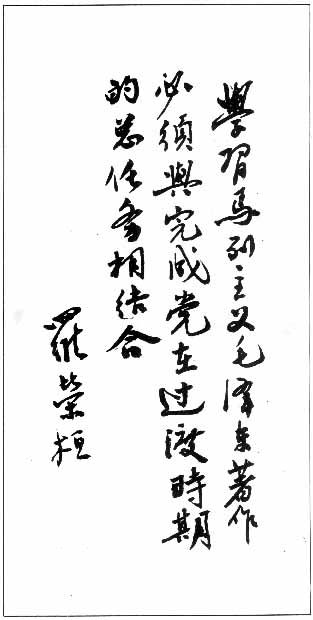 學習马列主义毛泽东著作
必须與完成党在过渡時期
的总任务相结合
羅榮桓